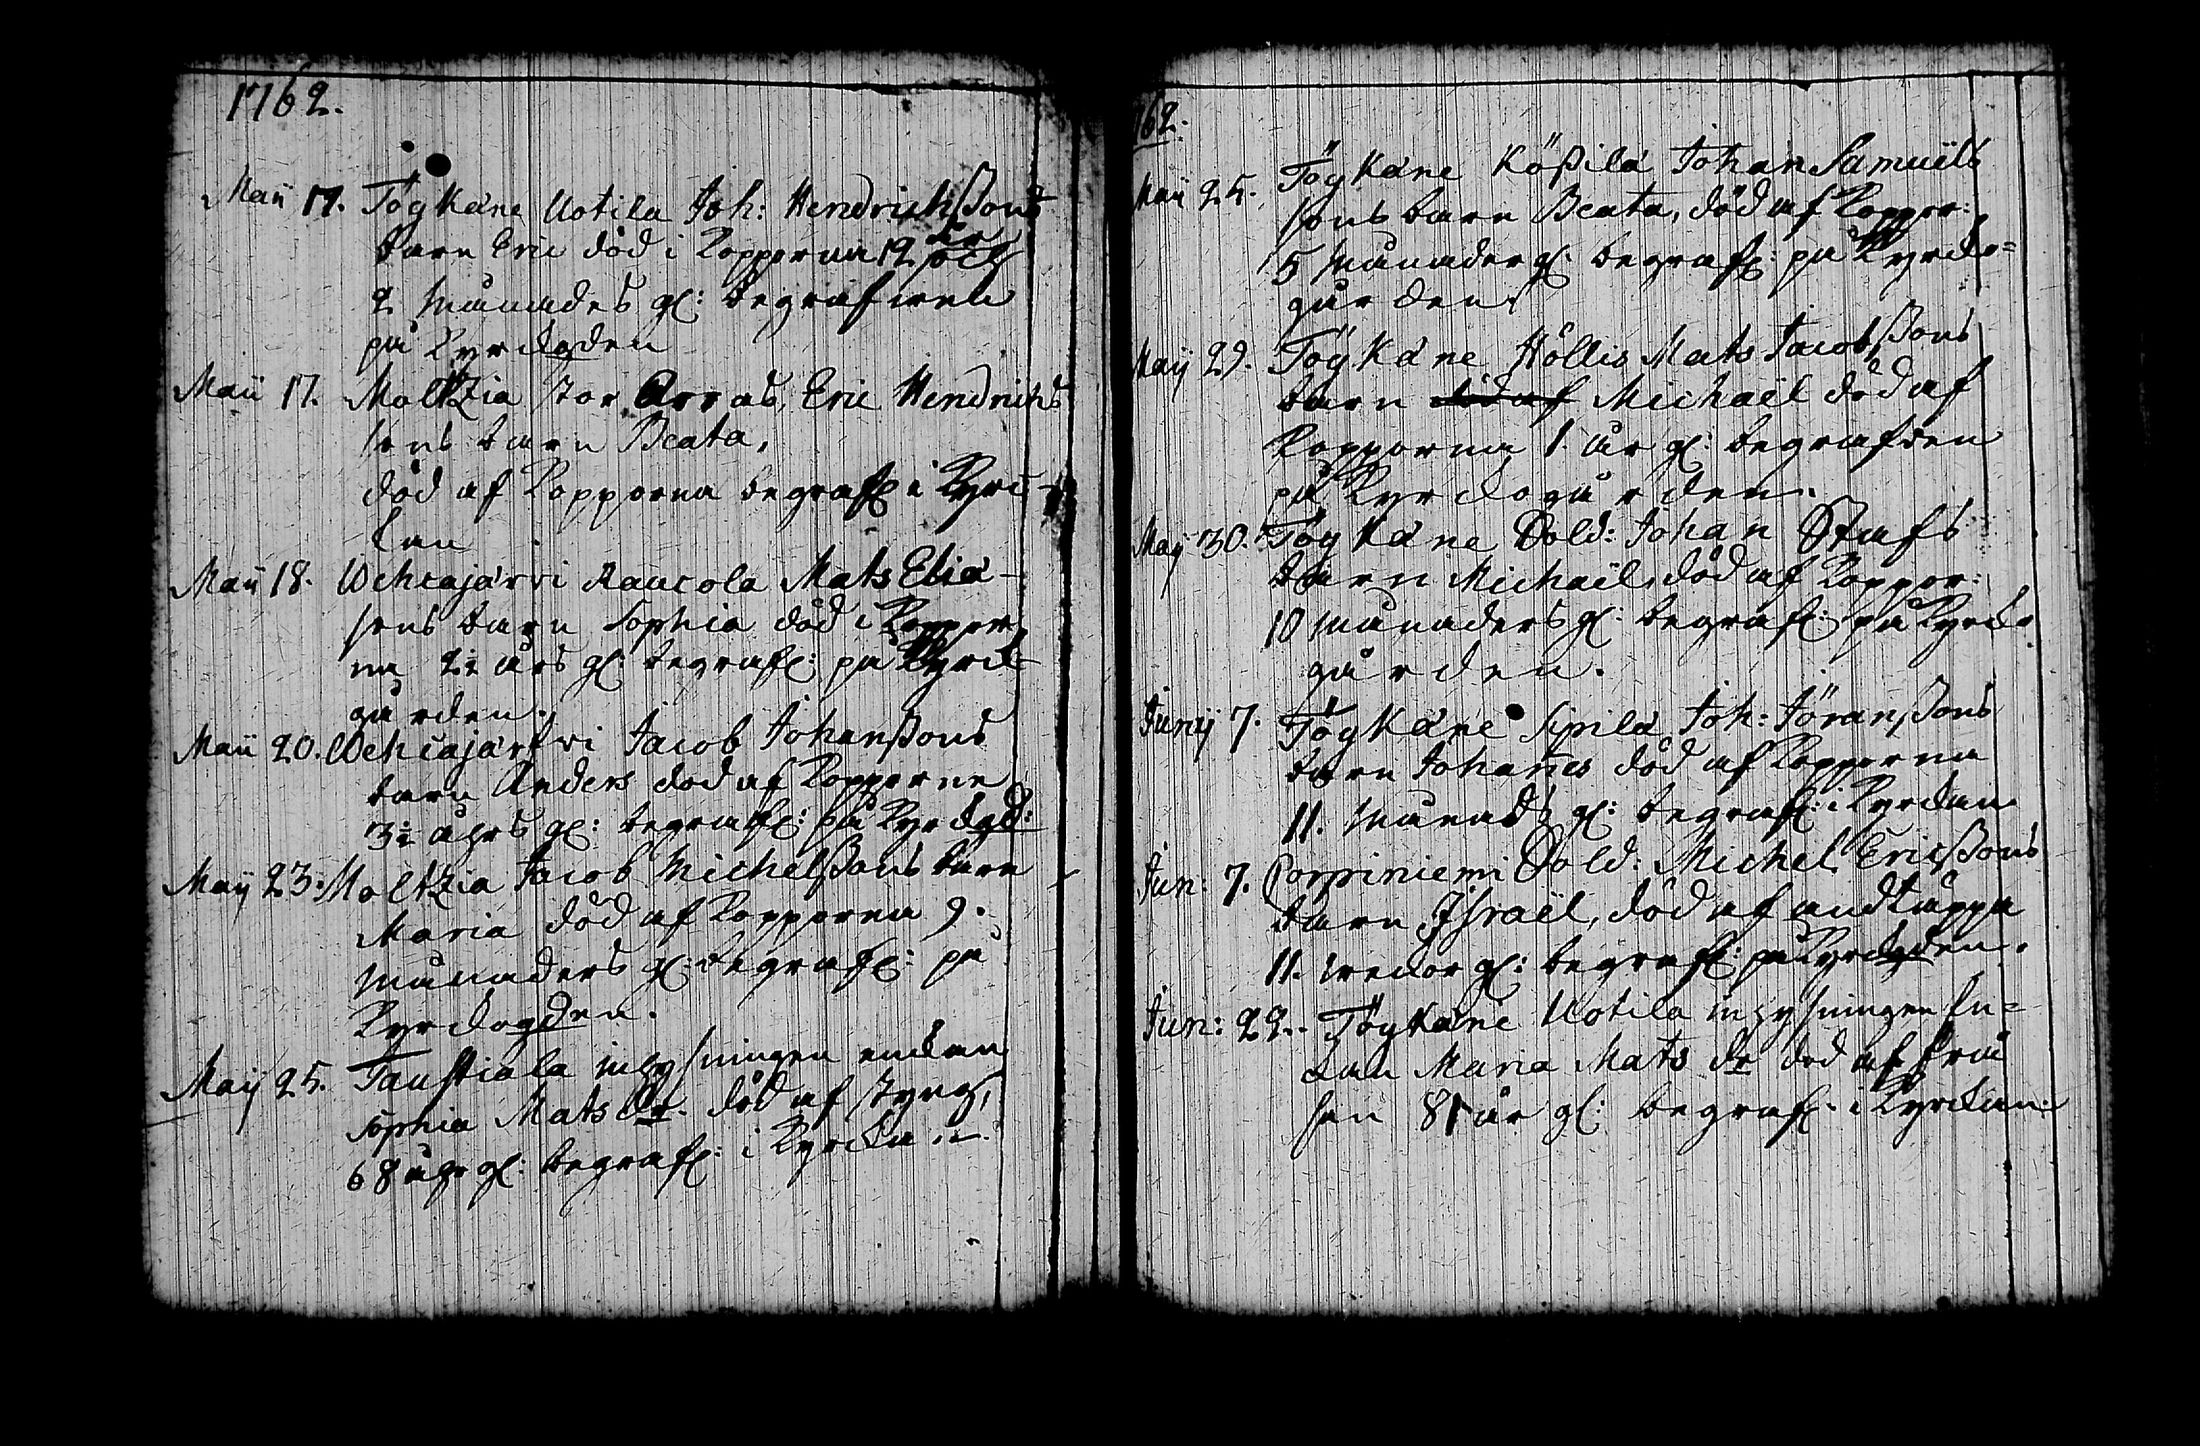 1762.
Maii 17. Töykäne Uotila Joh: Hendrichssons
barn Eric död i Kopporna 12 år och
2 månades gl: begrafwen
på Kyrckogden
Maii 17. Moltzia stor Arras, Eric Hendrichs
sons barn Beata,
död af Kopporna begrafl i Kyrc-
kan
Maii 18. Wehcajärvi Raucola Mats Eliä-
sons barn Sophia död i Koppor
na 2½ års gl: begrafl: på Kyrck-
gården.
Maii 20. Wehcajärfvi Jacob Johanssons
barn Anders död af Kopporne
3½ åhrs gl: begrafl: på Kyrckgd:
Maij 23: Moltzia Jacob Michelssons barn
Maria död af Kopporna 9.
månaders gl: begrafl: på
Kyrckogden.
Maij 25. Taustiala inhysningen enckan
Sophia Mats dr. död af styng,
68 åhr gl: begrafl: i Kyrckan.
762.
Maii 25. Töykäne Kössilä Johan Samuels
sons barn Beata, död af Koppor:
5 månader gl: begrafl: på Kyrcko=
gården.
Maij 29. Töykäne Höllis Mats Jacobssons
barn död af Michaël död af
Kopporna 1 år gl: begrafven
på Kyrckogården.
Maij 30. Töykäne Sold: Johan Stafs
barn Michaël, död af Koppor:
10 månaders gl: begrafl: på Kyrcko
gården.
Junij 7. Töykäne Sipilä Joh: Jöranssons
barn Johanes död af Kopporna
11. månads gl: begrafl: i Kyrckan
Jun: 7. Porriniemi Sold: Michel Ericssons
barn Israël, död af andtäppa
11. weckor gl: begrafl: på Kyrckgden.
Jun: 22. Töykäne Uotila inhysningen En=
kan Maria Mats dr död af frå
sen 81 år gl: begrafl: i Kyrckan.